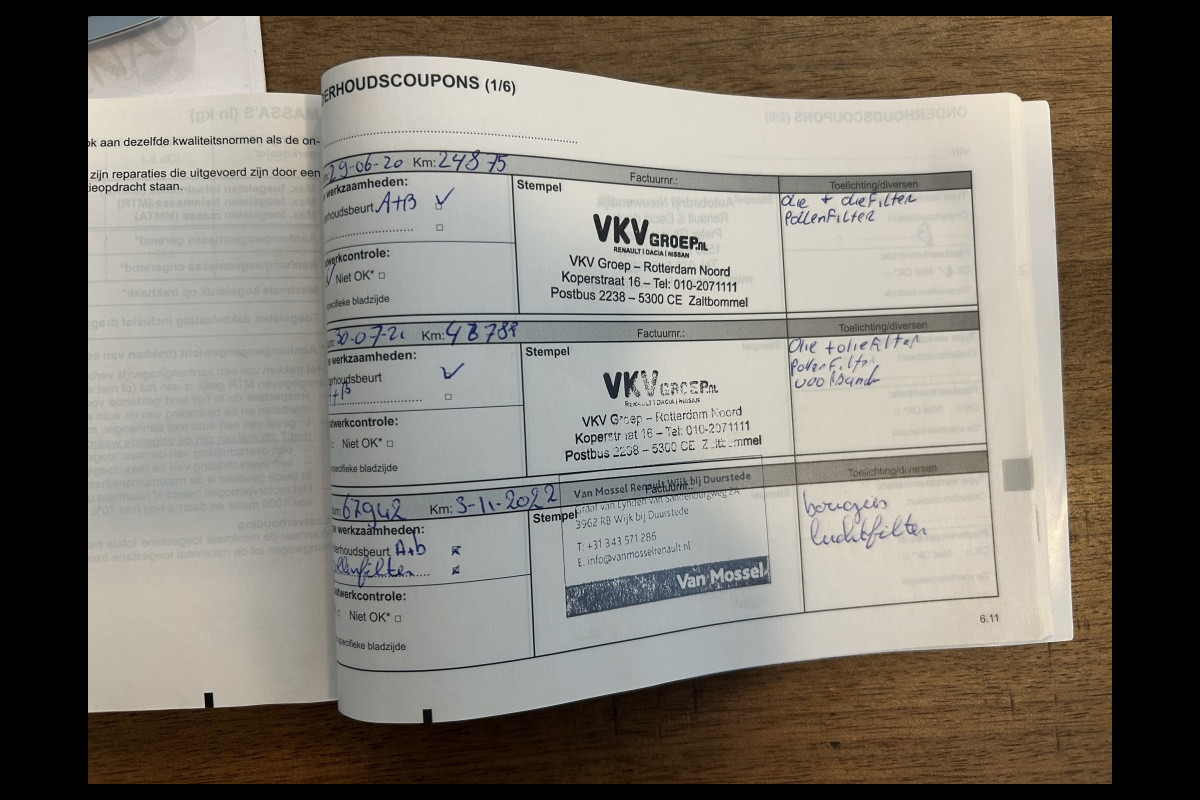 NAUL
ok aan dezelfde kwaliteitsnormen als de on-
zijn reparaties die uitgevoerd zijn door een
ieopdracht staan.
ERHOUDSCOUPONS (1/6)
29-06-20 Km: 24875
Factuurnr.:
Toelichting/diversen
werkzaamheden:
erhoudsbeurt A+B
Stempel
VKV GROEP.nl
RENAULT | DACIA | NISSAN
VKV Groep – Rotterdam Noord
Koperstraat 16 – Tel: 010-2071111
Postbus 2238 – 5300 CE Zaltbommel
olie + oliefilter
Pollenfilter
werkcontrole:
Niet OK*
specifieke bladzijde
30-07-21 Km: 48788
Factuurnr.:
Toelichting/diversen
werkzaamheden:
erhoudsbeurt
+B
Stempel
VKV GROEP.nl
RENAULT | DACIA | NISSAN
VKV Groep – Rotterdam Noord
Koperstraat 16 – Tel: 010-2071111
Postbus 2238 – 5300 CE Zaltbommel
Olie + oliefilter
Pollenfilter
twerkcontrole:
Niet OK*
specifieke bladzijde
67942 Km: 3-11-2022
Factuurnr.:
Toelichting/diversen
werkzaamheden:
erhoudsbeurt A+b
llenfilter
Stempel
Van Mossel Renault Wijk bij Duurstede
Graaf van Lynden van Sandenburgweg 2A
3962 RB Wijk bij Duurstede
T: +31 343 571 286
E: info@vanmosselrenault.nl
Van Mossel
bougies
luchtfilter
twerkcontrole:
Niet OK*
specifieke bladzijde
6.11